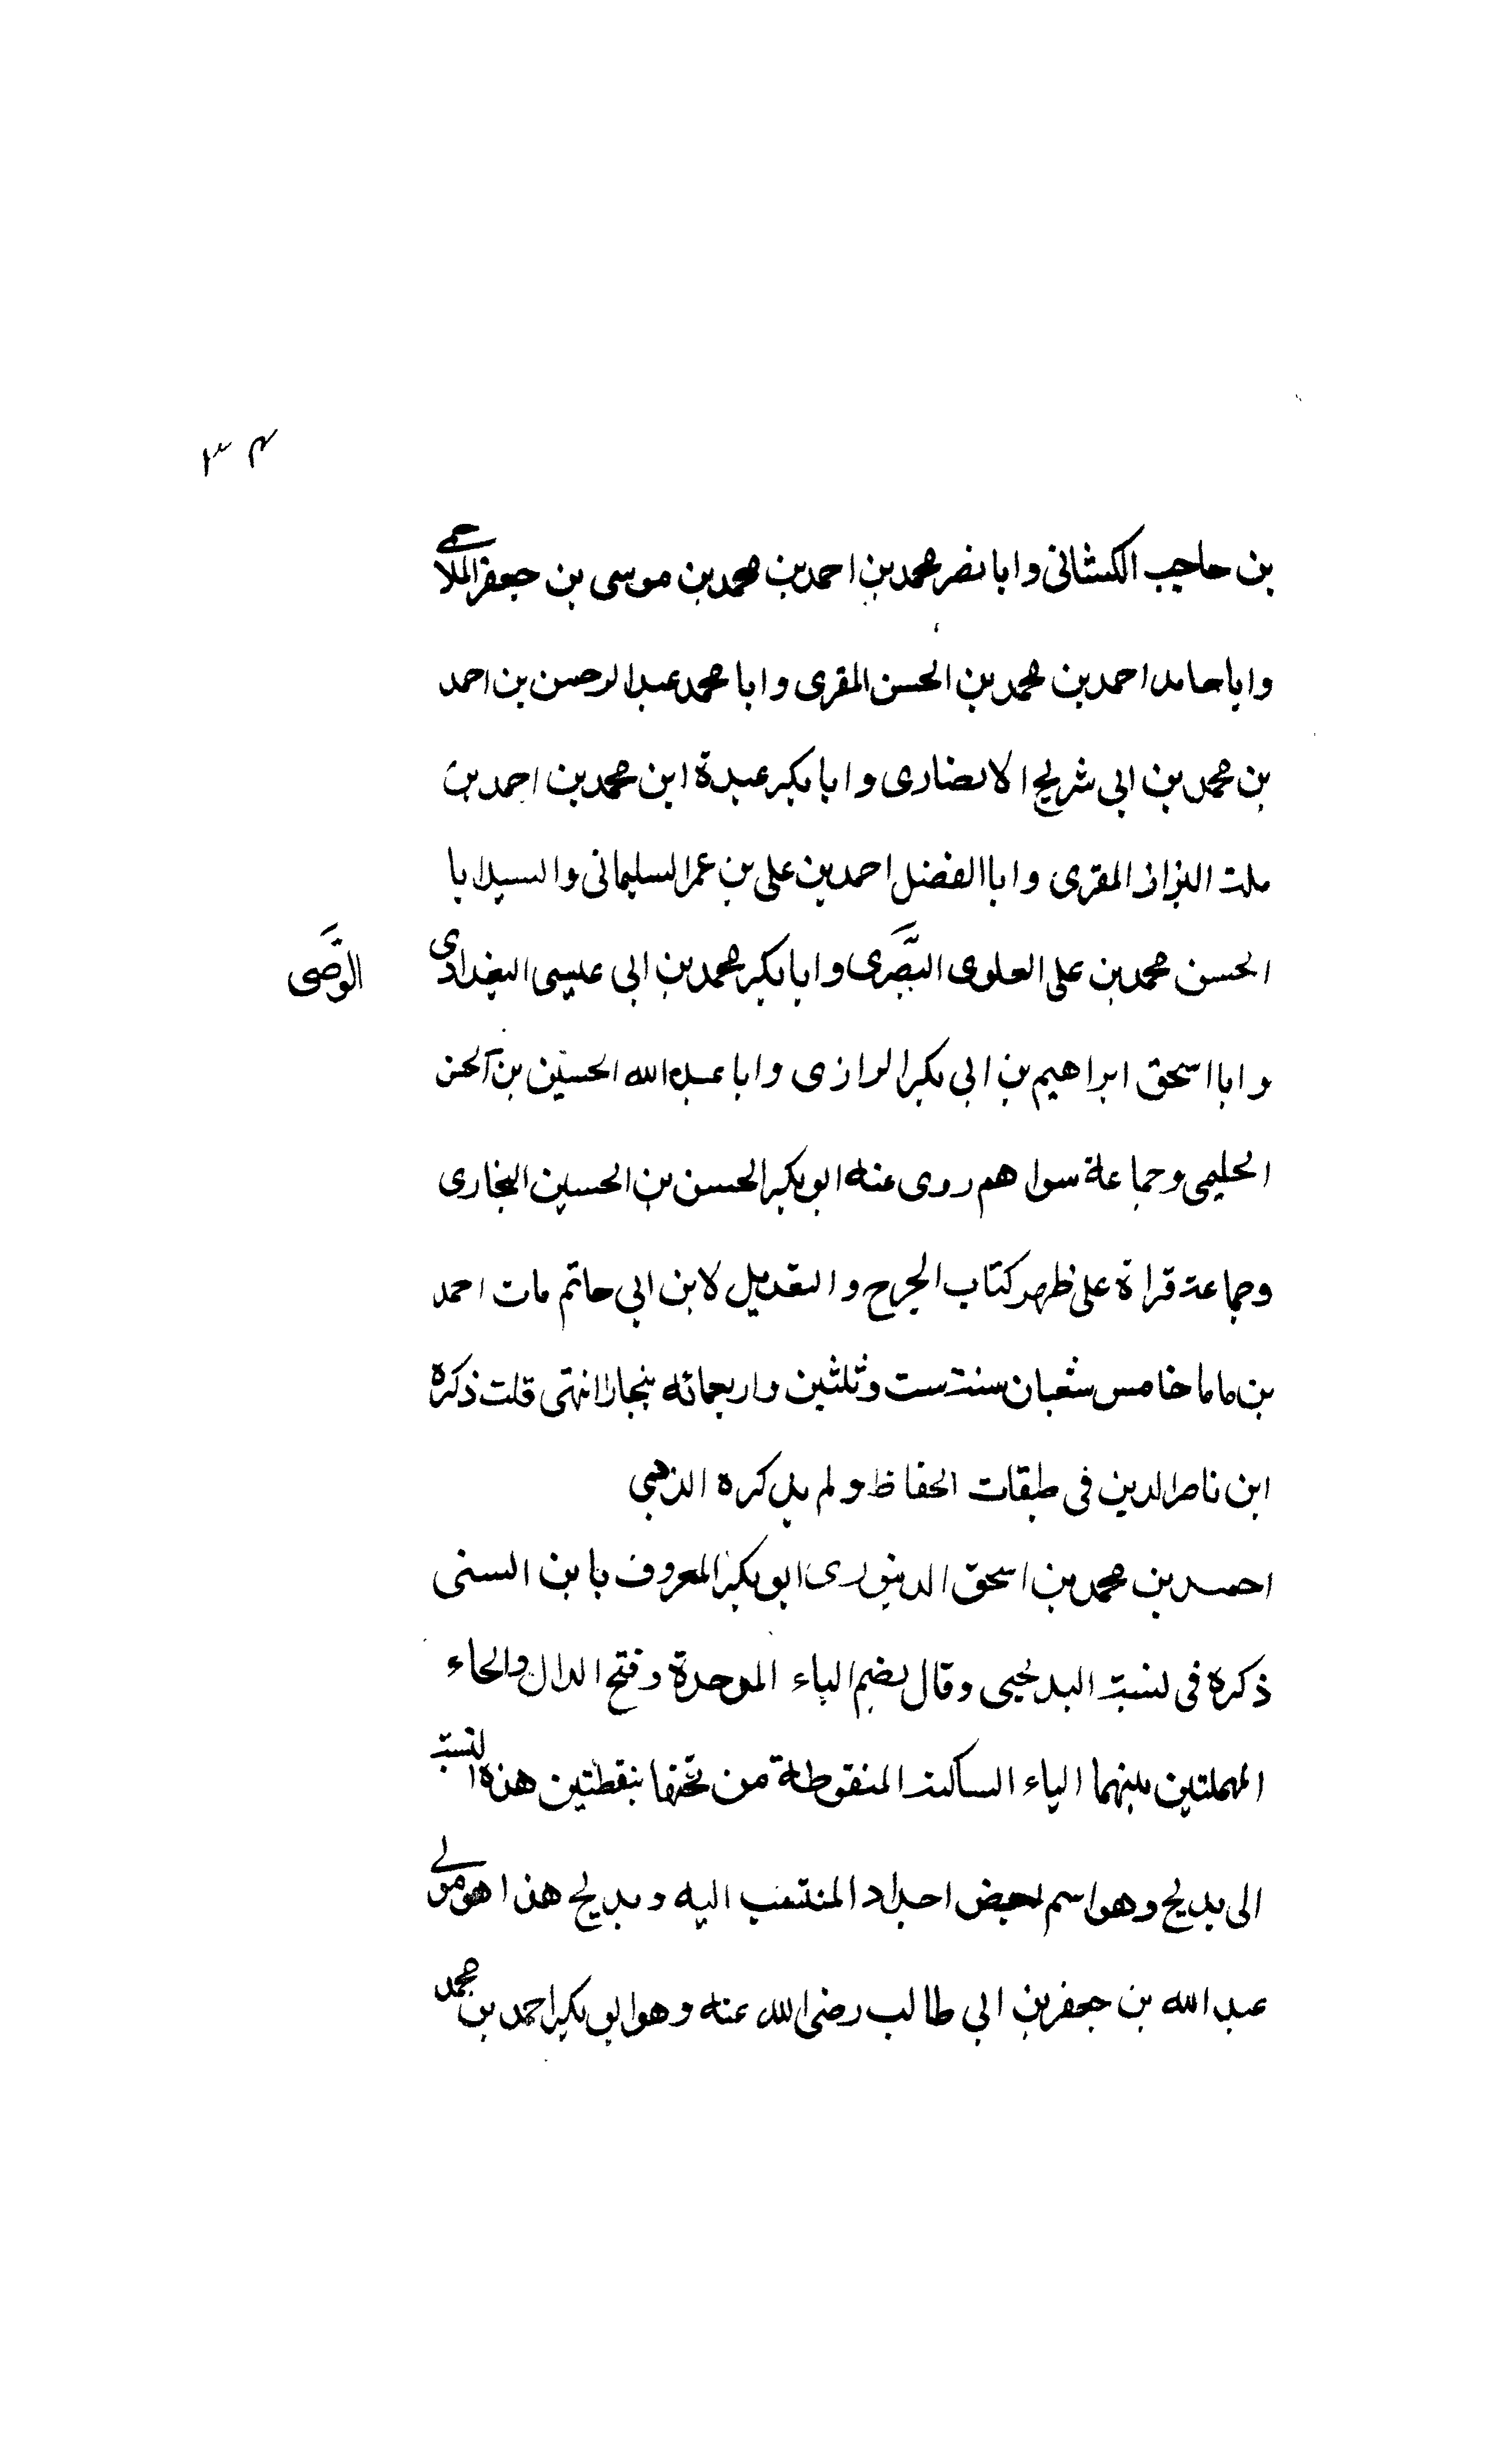 بن حاجب الكشانى وابا نصر محمد بن احمد بن محمد بن موسى بن جعفر الملاحمى
وابا حامد احمد بن محمد بن الحسن المقرى وابا محمد عبد الرحمن بن احمد
بن محمد بن ابى شريح الانصارى وابا بكر عبدة ابن محمد بن احمد بن
ملت البزاز المقرى وابا الفضل احمد بن على بن عمر السليمانى والسيد ابا
الحسن محمد بن على العلوى البصرى وابا بكر محمد بن ابى عيسى البغدادى
الوصى
وابا اسحق ابراهيم بن ابى بكر الرازى وابا عبد الله الحسين بن الحسن
الحليمى وجماعة سواهم روى عنه ابو بكر الحسن بن الحسين البخارى
وجماعة قراة على ظهر كتاب الجرح والتعديل لابن ابى حاتم مات احمد
بن ماما خامس شعبان سنة ست وثلثين واربعمائه ببخارا انتهى قلت ذكره
ابن ناصر الدين فى طبقات الحفاظ ولم يذكره الذهبى
احمد بن محمد بن اسحق الدينورى ابو بكر المعروف بابن السنى
ذكره فى نسبة البديحى وقال بضم الباء الموحدة وفتح الدال والحاء
المهملتين بينهما الياء الساكنة المنقوطة من تحتها بنقطتين هذه النسبة
الى بديح وهو اسم لبعض اجداد المنتسب اليه وبديح هذا هو مولى
عبد الله بن جعفر بن ابى طالب رضى الله عنه وهو ابو بكر احمد بن محمد